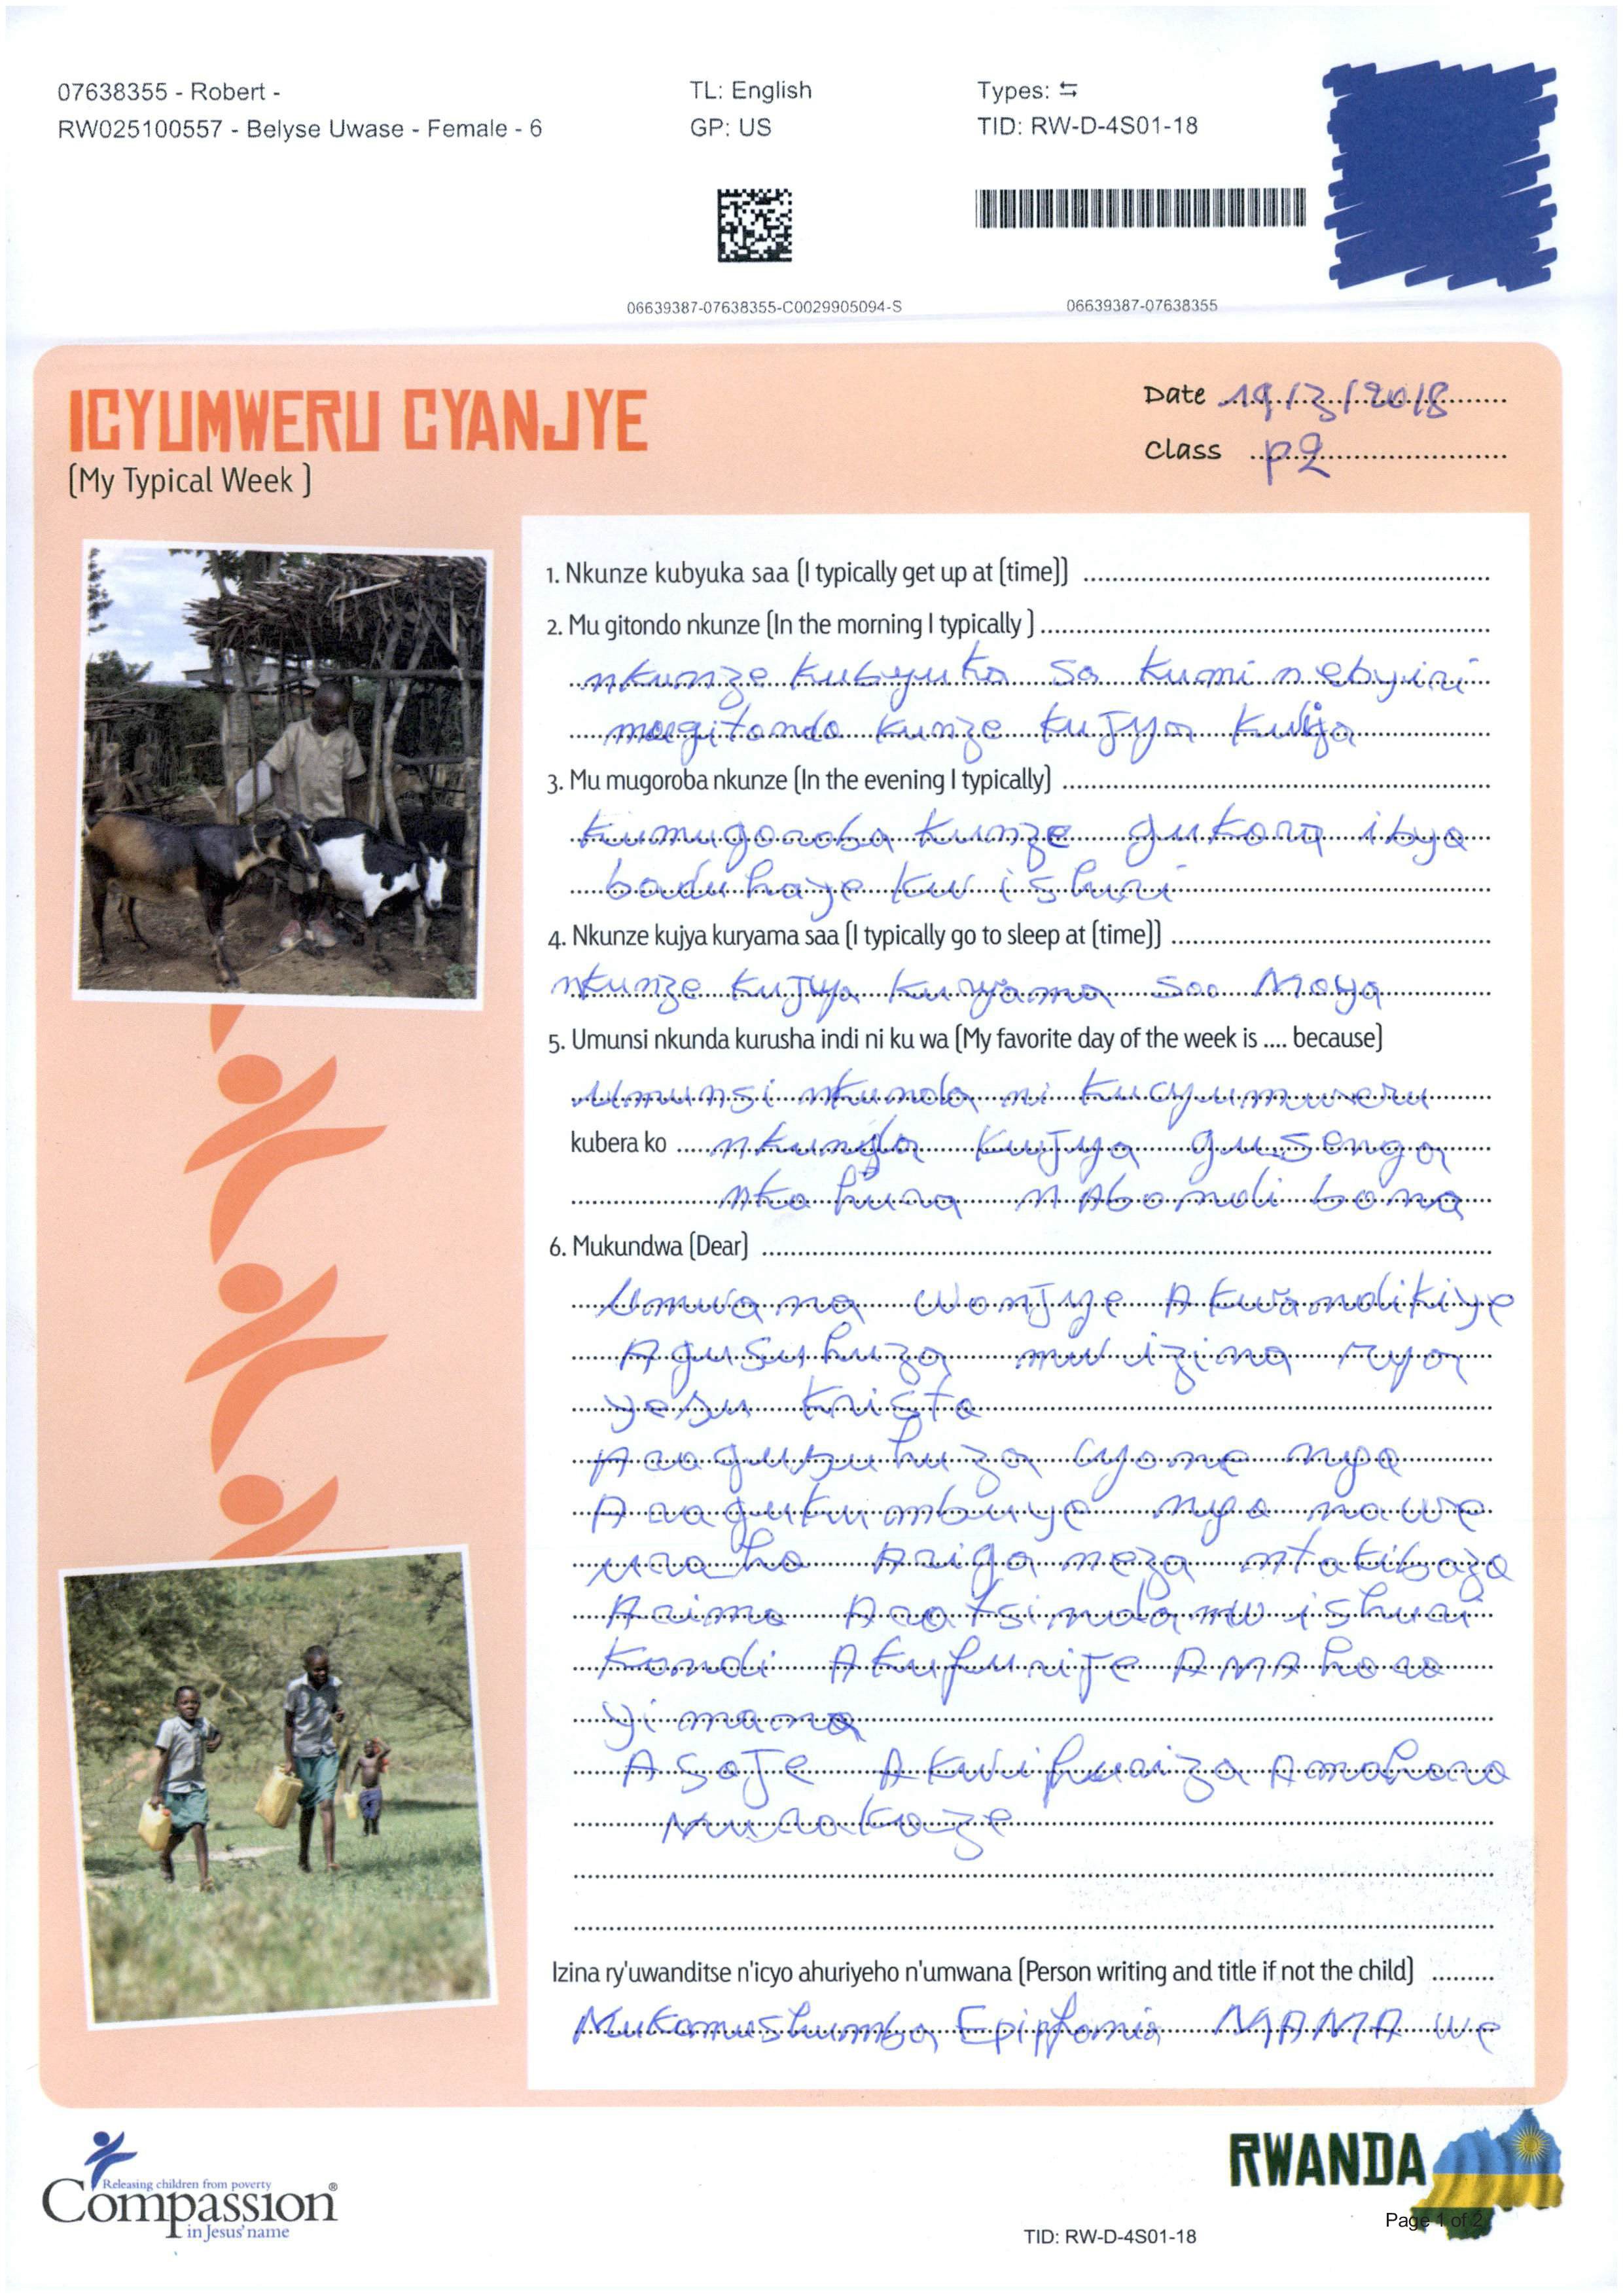 07638355 - Robert -
RW025100557 - Belyse Uwase - Female - 6
TL: English
GP: US
Types: ⇆
TID: RW-D-4S01-18
06639387-07638355-C0029905094-S
06639387-07638355
ICYUMWERU CYANJYE
(My Typical Week )
Date 19/3/2018
Class p2
1. Nkunze kubyuka saa (I typically get up at (time))
2. Mu gitondo nkunze (In the morning I typically )
nkunze kubyuka sa kumi nebyiri
mugitondo kunze kujya kwiga
3. Mu mugoroba nkunze (In the evening I typically)
kumugoroba kunze gukora ibyo
baduhaye kwishuri
4. Nkunze kujya kuryama saa (I typically go to sleep at (time))
nkunze kujya kuryama saa Moya
5. Umunsi nkunda kurusha indi ni ku wa (My favorite day of the week is .... because)
Umunsi nkunda ni kucyumweru
kubera ko nkunda kujya gusenga
nka hura nAbandi bana
6. Mukundwa (Dear)
Umwana wanjye Akwandikiye
Agusuhuza mwizina rya
yesu kristo
Aragusuhuza cyane ngo
Aragukumbuye ngo nawe
uraho Ariga neza ntakibazo
Arimo Aratsinda mwishuri
kandi Akufurije AMAhoro
yimana
Asoje Akwifuriza Amahoro
Murakoze
Izina ry'uwanditse n'icyo ahuriyeho n'umwana (Person writing and title if not the child)
Mukamushumba Epiphania MAMA we
Releasing children from poverty
Compassion®
in Jesus' name
RWANDA
Page 1 of 2
TID: RW-D-4S01-18